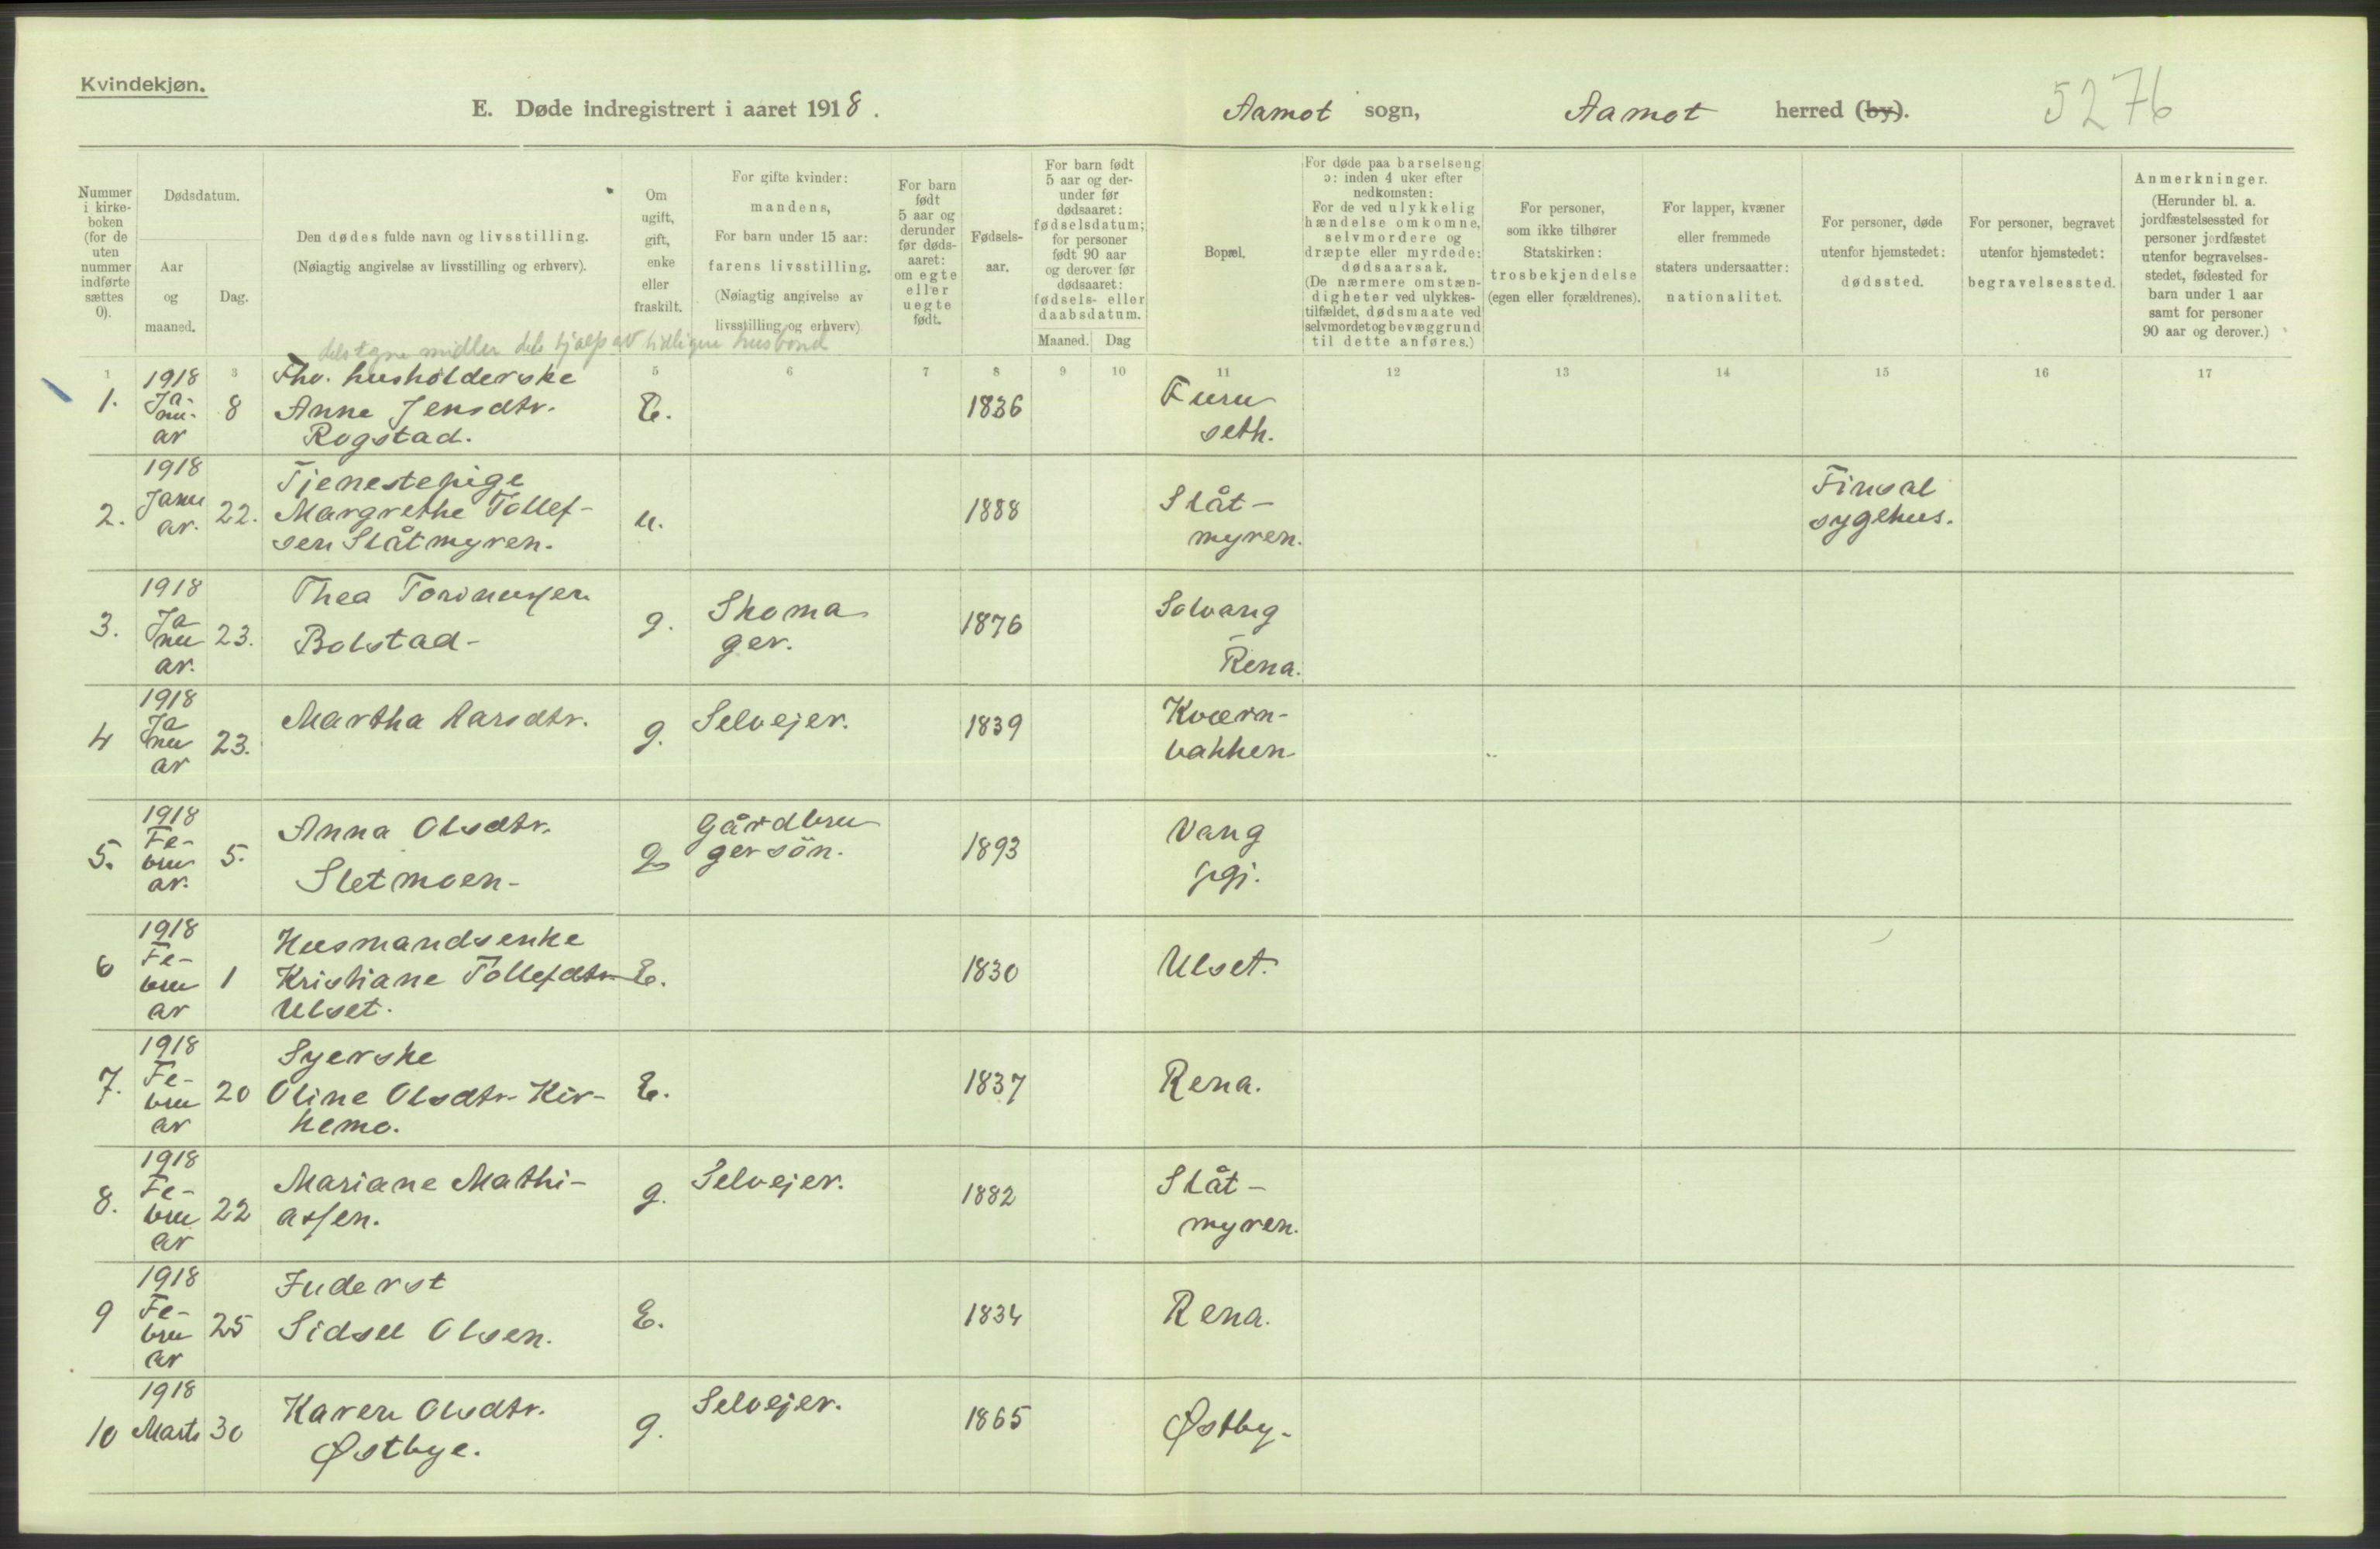 Kvindekjøn.
E. Døde indregistrert i aaret 1918.
Aamot sogn, Aamot herred (by).
5276
Nummer i kirke-boken (for de uten nummer indførte sættes 0).
Dødsdatum.
Aar og maaned.
Dag.
Den dødes fulde navn og livsstilling.
(Nøiagtig angivelse av livsstilling og erhverv).
Om ugift, gift, enke eller fraskilt.
For gifte kvinder:
mandens,
For barn under 15 aar:
farens livsstilling.
(Nøiagtig angivelse av
livsstilling og erhverv)
For barn født 5 aar og derunder før døds-aaret: om egte eller uegte født.
Fødsels-aar.
For barn født 5 aar og der-under før dødsaaret: fødselsdatum; for personer født 90 aar og derover før dødsaaret: fødsels- eller daabsdatum.
Maaned. Dag
Bopæl.
For døde paa barselseng
ɔ: inden 4 uker efter
nedkomsten:
For de ved ulykkelig
hændelse omkomne,
selvmordere og
dræpte eller myrdede:
dødsaarsak.
(De nærmere omstæn-
digheter ved ulykkes-
tilfældet, dødsmaate ved
selvmordet og bevæggrund
til dette anføres.)
For personer,
som ikke tilhører
Statskirken:
trosbekjendelse
(egen eller forældrenes).
For lapper, kvæner
eller fremmede
staters undersaatter:
nationalitet.
For personer, døde
utenfor hjemstedet:
dødssted.
For personer, begravet
utenfor hjemstedet:
begravelsessted.
Anmerkninger.
(Herunder bl. a.
jordfæstelsessted for
personer jordfæstet
utenfor begravelses-
stedet, fødested for
barn under 1 aar
samt for personer
90 aar og derover.)
dels egne midler dels hjælp av tidligere husbond
1 3 5 6 7 8 9 10 11 12 13 14 15 16 17
1. 1918 Ja-nu-ar 8 Fhv. husholderske
Anne Jensdtr.
Rogstad. E. 1836 Furu
seth.
2. 1918 Janu ar. 22. Tjenestepige
Margrethe Tollef-
sen Slåtmyren. u. 1888 Slåt-
myren. Finsal
sygehus.
3. 1918 Ja nu ar. 23. Thea
Bolstad- g. Skoma
ger. 1876 Solvang
Rena.
4 1918 Ja nu ar 23. Martha Larsdtr. g. Selvejer. 1839 Kværn-
bakken
5. 1918 Fe-bru ar. 5. Anna Olsdtr.
Sletmoen- g Gårdbru
gersön. 1893 Vang
pgj.
6 1918 Fe-bru ar 1 Husmandsenke
Kristiane Tollefdtr.
Ulset. E. 1830 Ulset.
7. 1918 Fe-bru ar 20 Syerske
Oline Olsdtr. Kir-
kemo. E. 1837 Rena.
8. 1918 Fe-bru ar 22 Mariane Mathi-
assen. g. Selvejer. 1882 Slåt-
myren.
9 1918 Fe-bru ar 25 Inderst
Sidsel Olsen. E. 1834 Rena.
10 1918 Marts 30 Karen Olsdtr.
Østbye. g. Selvejer. 1865 Østby-